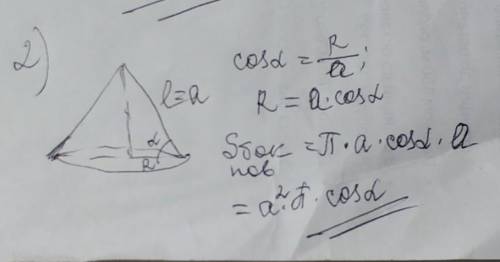 2)
l=a
α
R
cosα = R/a;
R = a·cosα
Sбок пов = π·a·cosα·a
= a²·π·cosα